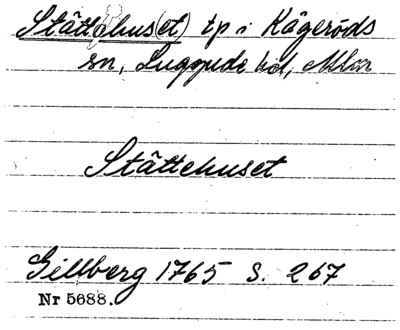 Stättehus(et) tp i Kågeröds
sn, Luggude hd, Mlm
Stättehuset
Gillberg 1765 S. 267
Nr 5688.